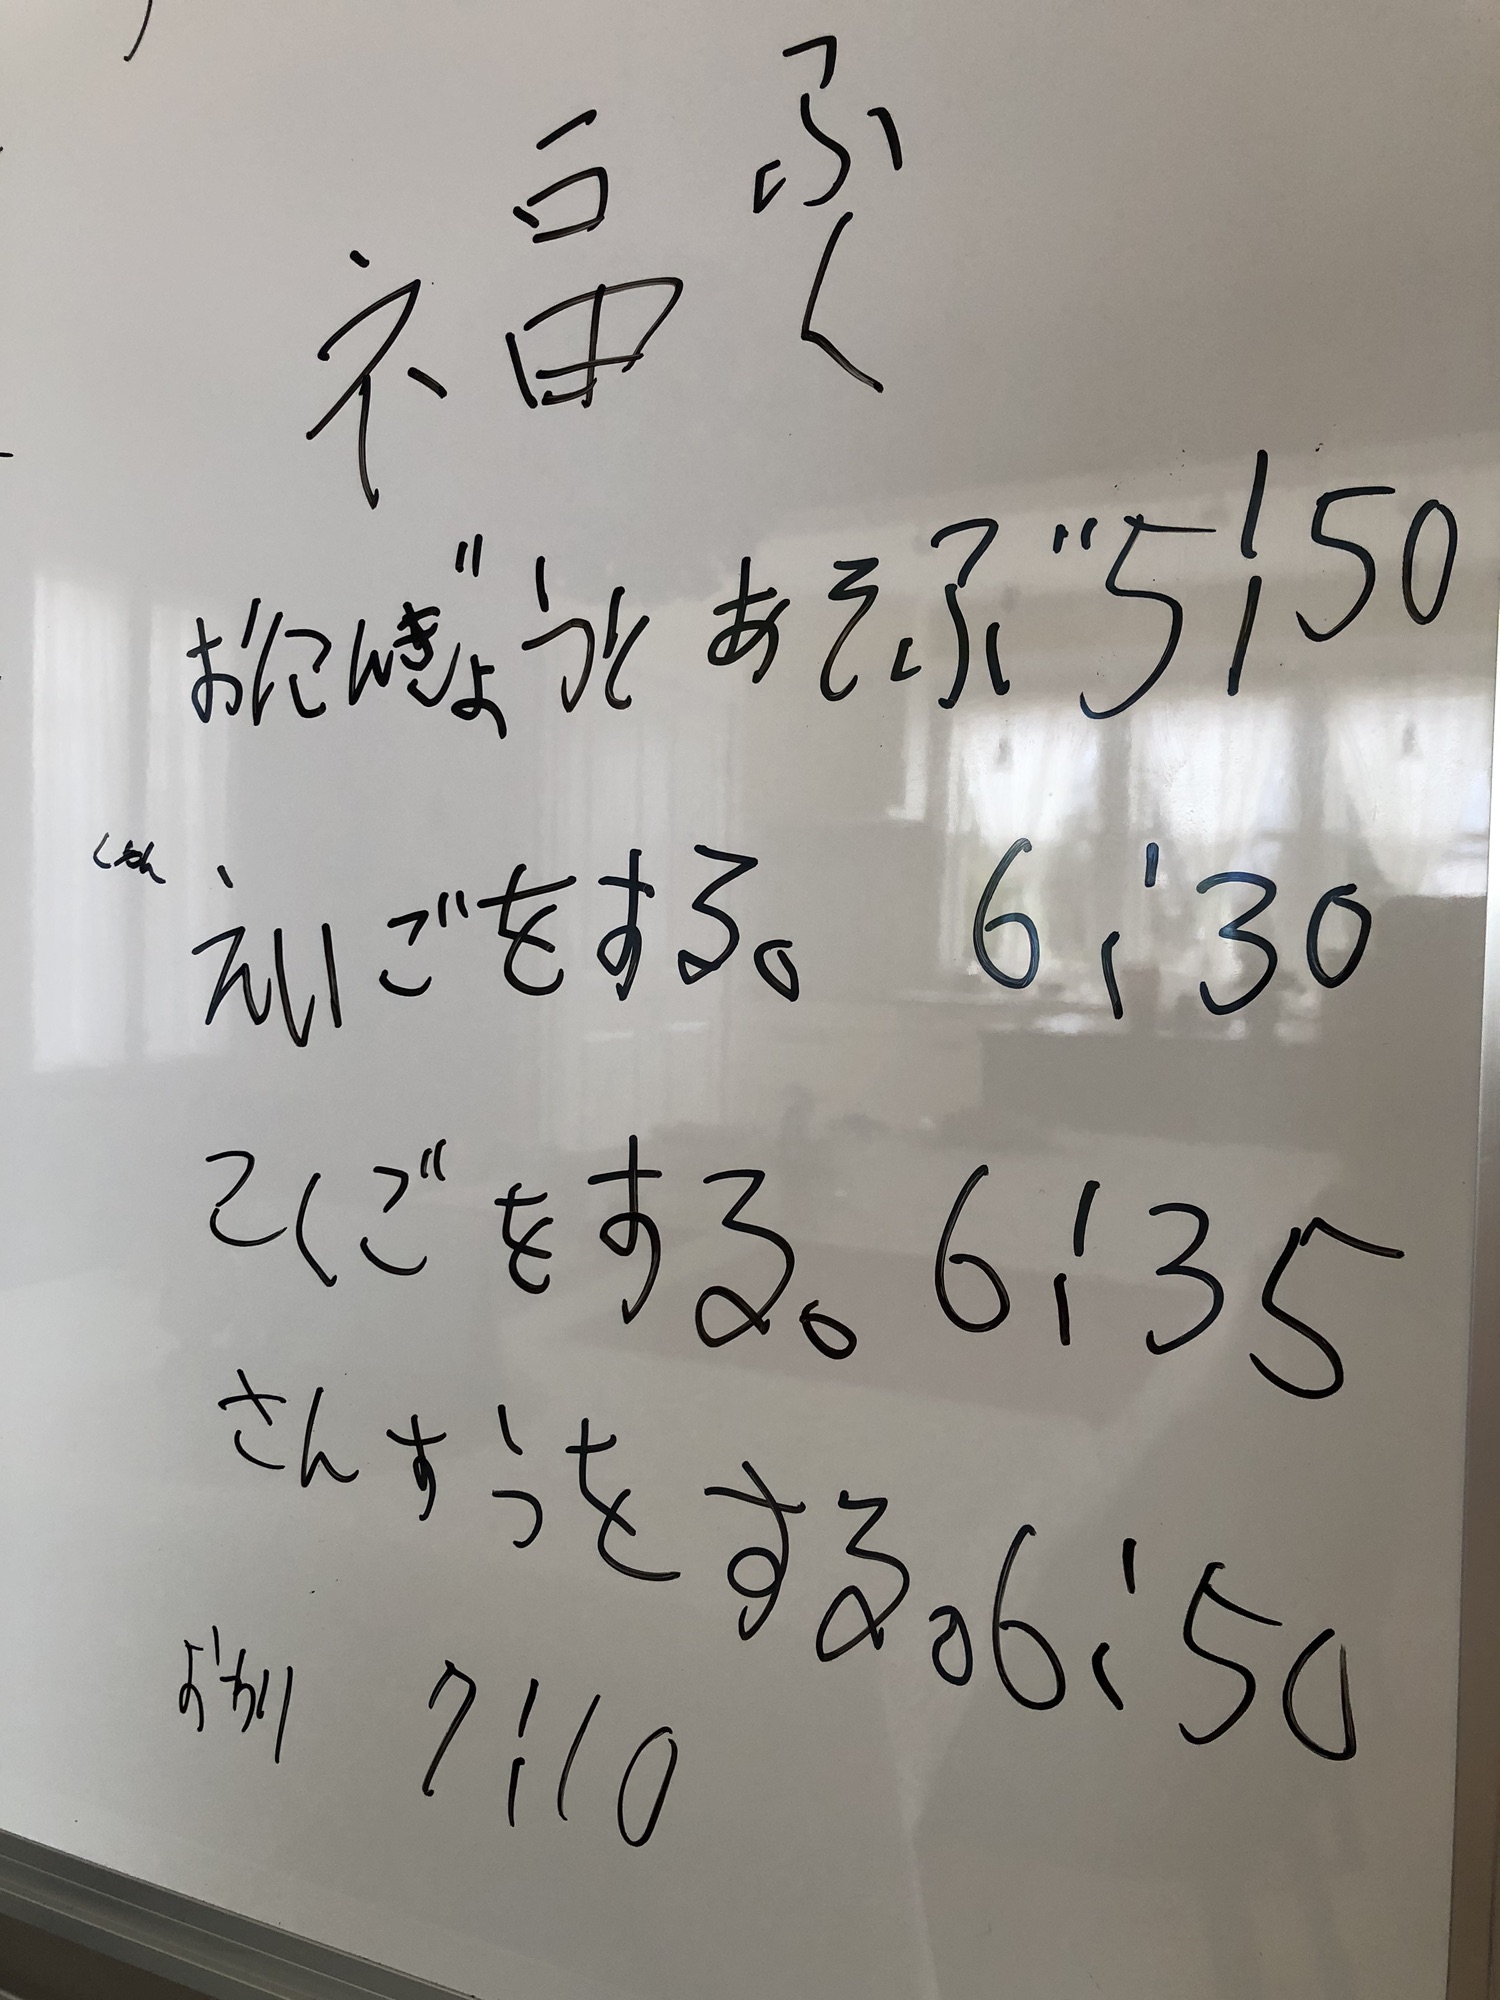 福 ふく
おにんぎょうとあそぶ 5:50
えいごをする。 6:30
こくごをする。 6:35
さんすうをする。 6:50
おわり 7:10